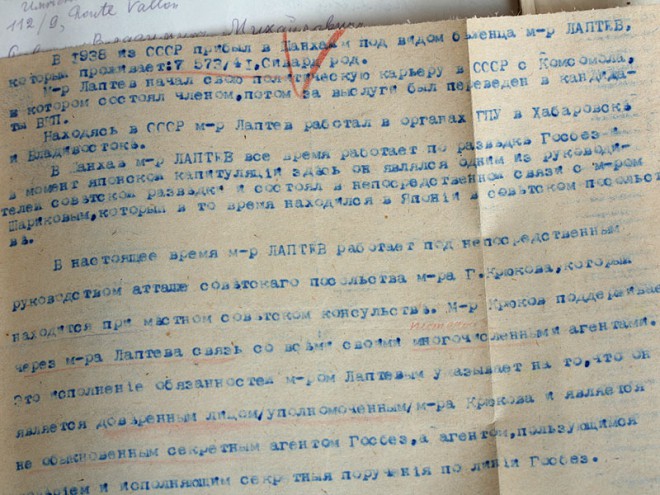 112/9, Route Vallon
В 1938 из СССР прибыл в Шанхай под видом бѣженца м-р ЛАПТЕВ,
который проживает: 7 573/41, Сикард род.
М-р Лаптев начал свою политическую карьеру в СССР с Комсомола,
в котором состоял членом, потом за выслуги был переведен в кандида-
ты ВКП.
Находясь в СССР м-р Лаптев работал в органах ГПУ в Хабаровскѣ
и Владивостокѣ.
В Шанхаѣ м-р ЛАПТЕВ все время работает по разведкѣ Госбез и
в момент японской капитуляціи здѣсь он являлся одним из руководи-
телей совѣтской разведки и состоял в непосредственной связи с м-ром
Шариковым, который в то время находился в Японіи в совѣтском посольст-
вѣ.
В настоящее время м-р ЛАПТЕВ работает под непосредственным
руководством атташе совѣтскаго посольства м-ра Г. Крюкова, который
находится при мѣстном совѣтском консульствѣ. М-р Крюков поддерживает
через м-ра Лаптева связь со всѣми своими многочисленными агентами.
Это исполненіе обязанностей м-ром Лаптевым указывает на то, что он
является довѣренным лицом/уполномоченным/м-ра Крюкова и является
не обыкновенным секретным агентом Госбез, а агентом, пользующимся
и исполняющим секретныя порученія по линіи Госбез.